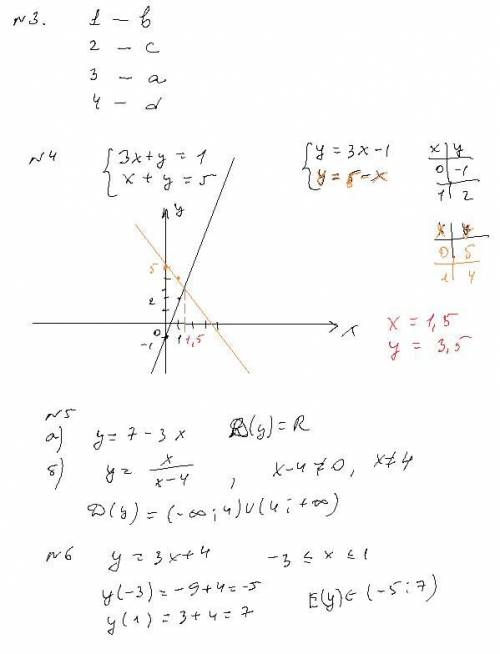 N3. 1 – b
2 – c
3 – a
4 – d
N4 { 3x+y = 1
x + y = 5
{ y = 3x-1
y = 5-x
x | y
0 | -1
1 | 2
x | y
0 | 5
1 | 4
y
5
2
-1 0 1 1,5 x
x = 1,5
y = 3,5
N5
а) y = 7 - 3x D(y) = R
б) y = x/(x-4) , x-4≠0, x≠4
D(y) = (-∞; 4)∪(4; +∞)
N6 y = 3x+4 -3 ≤ x ≤ 1
y(-3) = -9+4=-5
y(1) = 3+4 = 7
E(y)∈ (-5; 7)